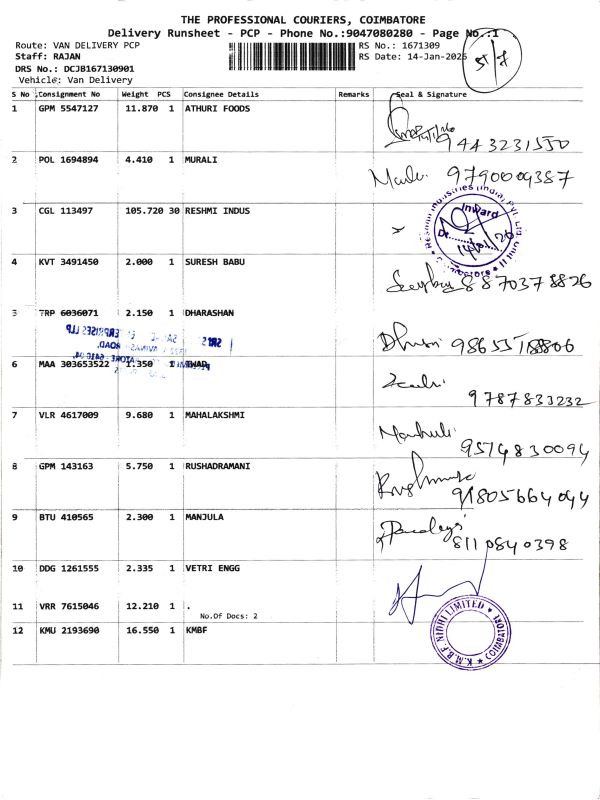 THE PROFESSIONAL COURIERS, COIMBATORE
Delivery Runsheet - PCP - Phone No.:9047080280 - Page No.:1
Route: VAN DELIVERY PCP
RS No.: 1671309
Staff: RAJAN
RS Date: 14-Jan-2026
DRS No.: DCJB167130901
Vehicle: Van Delivery
S No Consignment No Weight PCS Consignee Details Remarks Seal & Signature
1 GPM 5547127 11.870 1 ATHURI FOODS
9443231550
2 POL 1694894 4.410 1 MURALI
9790009387
3 CGL 113497 105.720 30 RESHMI INDUS
Reshmi Industries (India) Pvt Ltd Unit II
Inward
Coimbatore
4 KVT 3491450 2.000 1 SURESH BABU
8870378826
5 TRP 6036071 2.150 1 DHARASHAN
6 MAA 303653522 1.350 1
9787833232
7 VLR 4617009 9.680 1 MAHALAKSHMI
9574830094
8 GPM 143163 5.750 1 RUSHADRAMANI
9 BTU 410565 2.300 1 MANJULA
8110840398
10 DDG 1261555 2.335 1 VETRI ENGG
11 VRR 7615046 12.210 1 .
No.Of Docs: 2
12 KMU 2193690 16.550 1 KMBF
K.M.B.F. NIDHI LIMITED
COIMBATORE